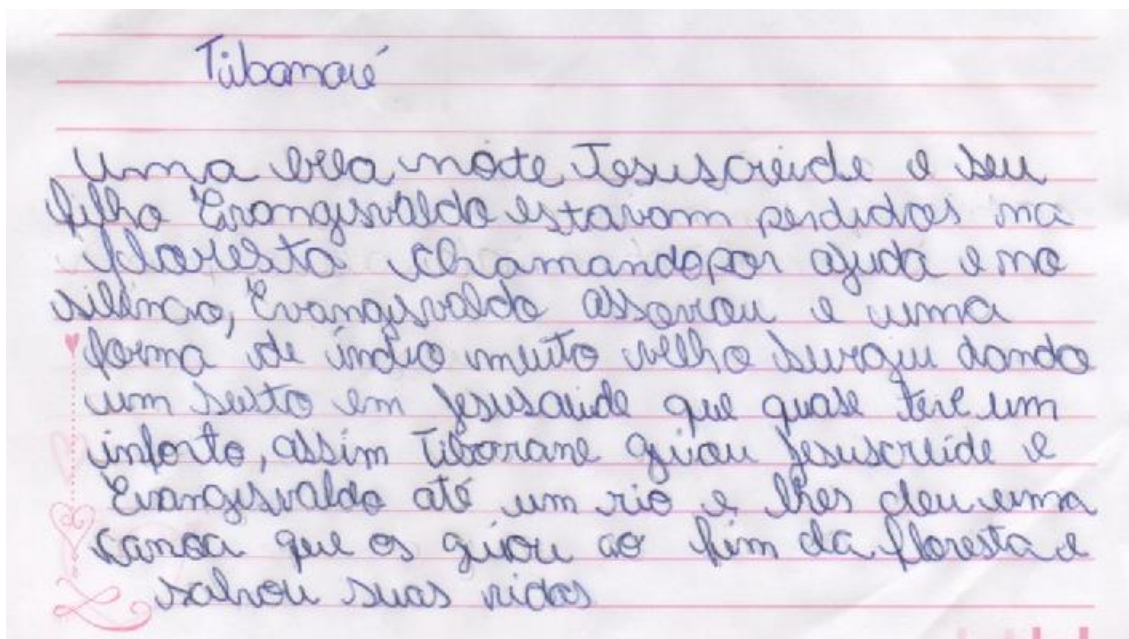 Tibanaré
Uma bela noite Jesuscreide e seu
filho Evangisvaldo estavam perdidos na
floresta chamandopor ajuda e no
silêncio, Evangisvaldo assoviou e uma
forma de índio muito velho surgiu dando
um susto em Jesuscreide que quase teve um
infarto, assim Tibarane guiou Jesuscreide e
Evangisvaldo até um rio e lhes deu uma
canoa que os guiou ao fim da floresta e
salvou suas vidas